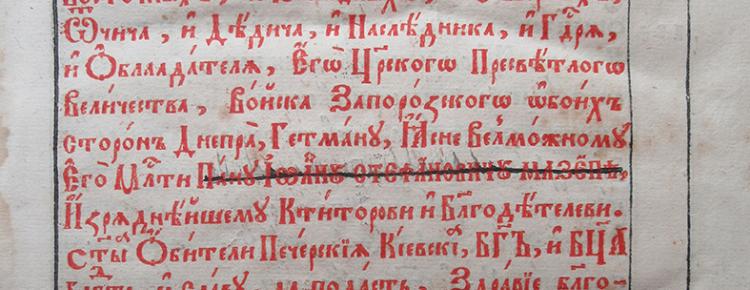 Ѿчича, и҆ Дѣ́дича, и҆ Наслѣ́дника, и҆ Гдⷭ҇рѧ,
и҆ Ѻ҆блаадáтелѧ, Е҆гѡ̀ Цр҃скогѡ Пресвѣ́тлогѡ
вели́чества, во́йска Запоро́зскогѡ ѡ҆бои́хъ
сторо́нъ Днепрà, Гетмáну, І҆Ꙗсне Велмо́жному
Е҆го̀ Млⷭ҇ти Пáну І҆ѡáнꙋ Ѻтефáновичꙋ мазе́пѣ,
И҆зрѧднѣ́йшему Кти́торови и҆ Блг҃одѣ́телеви.
Ст҃ы́ѧ Ѻ҆би́тели Пече́рскїѧ Кі́евскїѧ, БГ҃Ъ, и҆ БЦ҃А